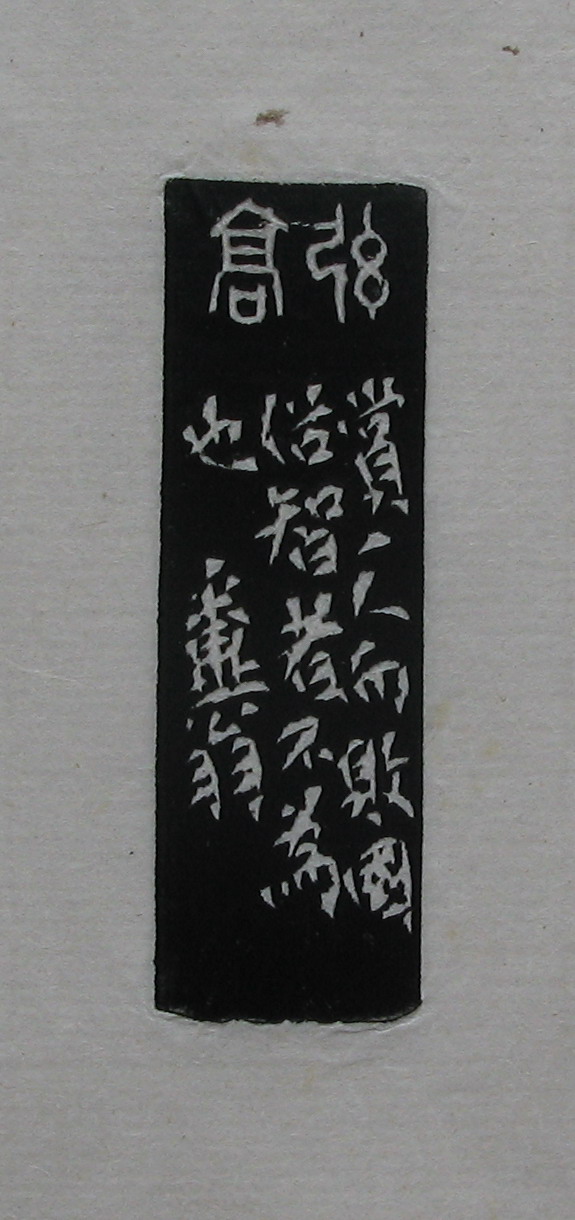 弦高
賞一人而敗國
俗智者不為
也 翁